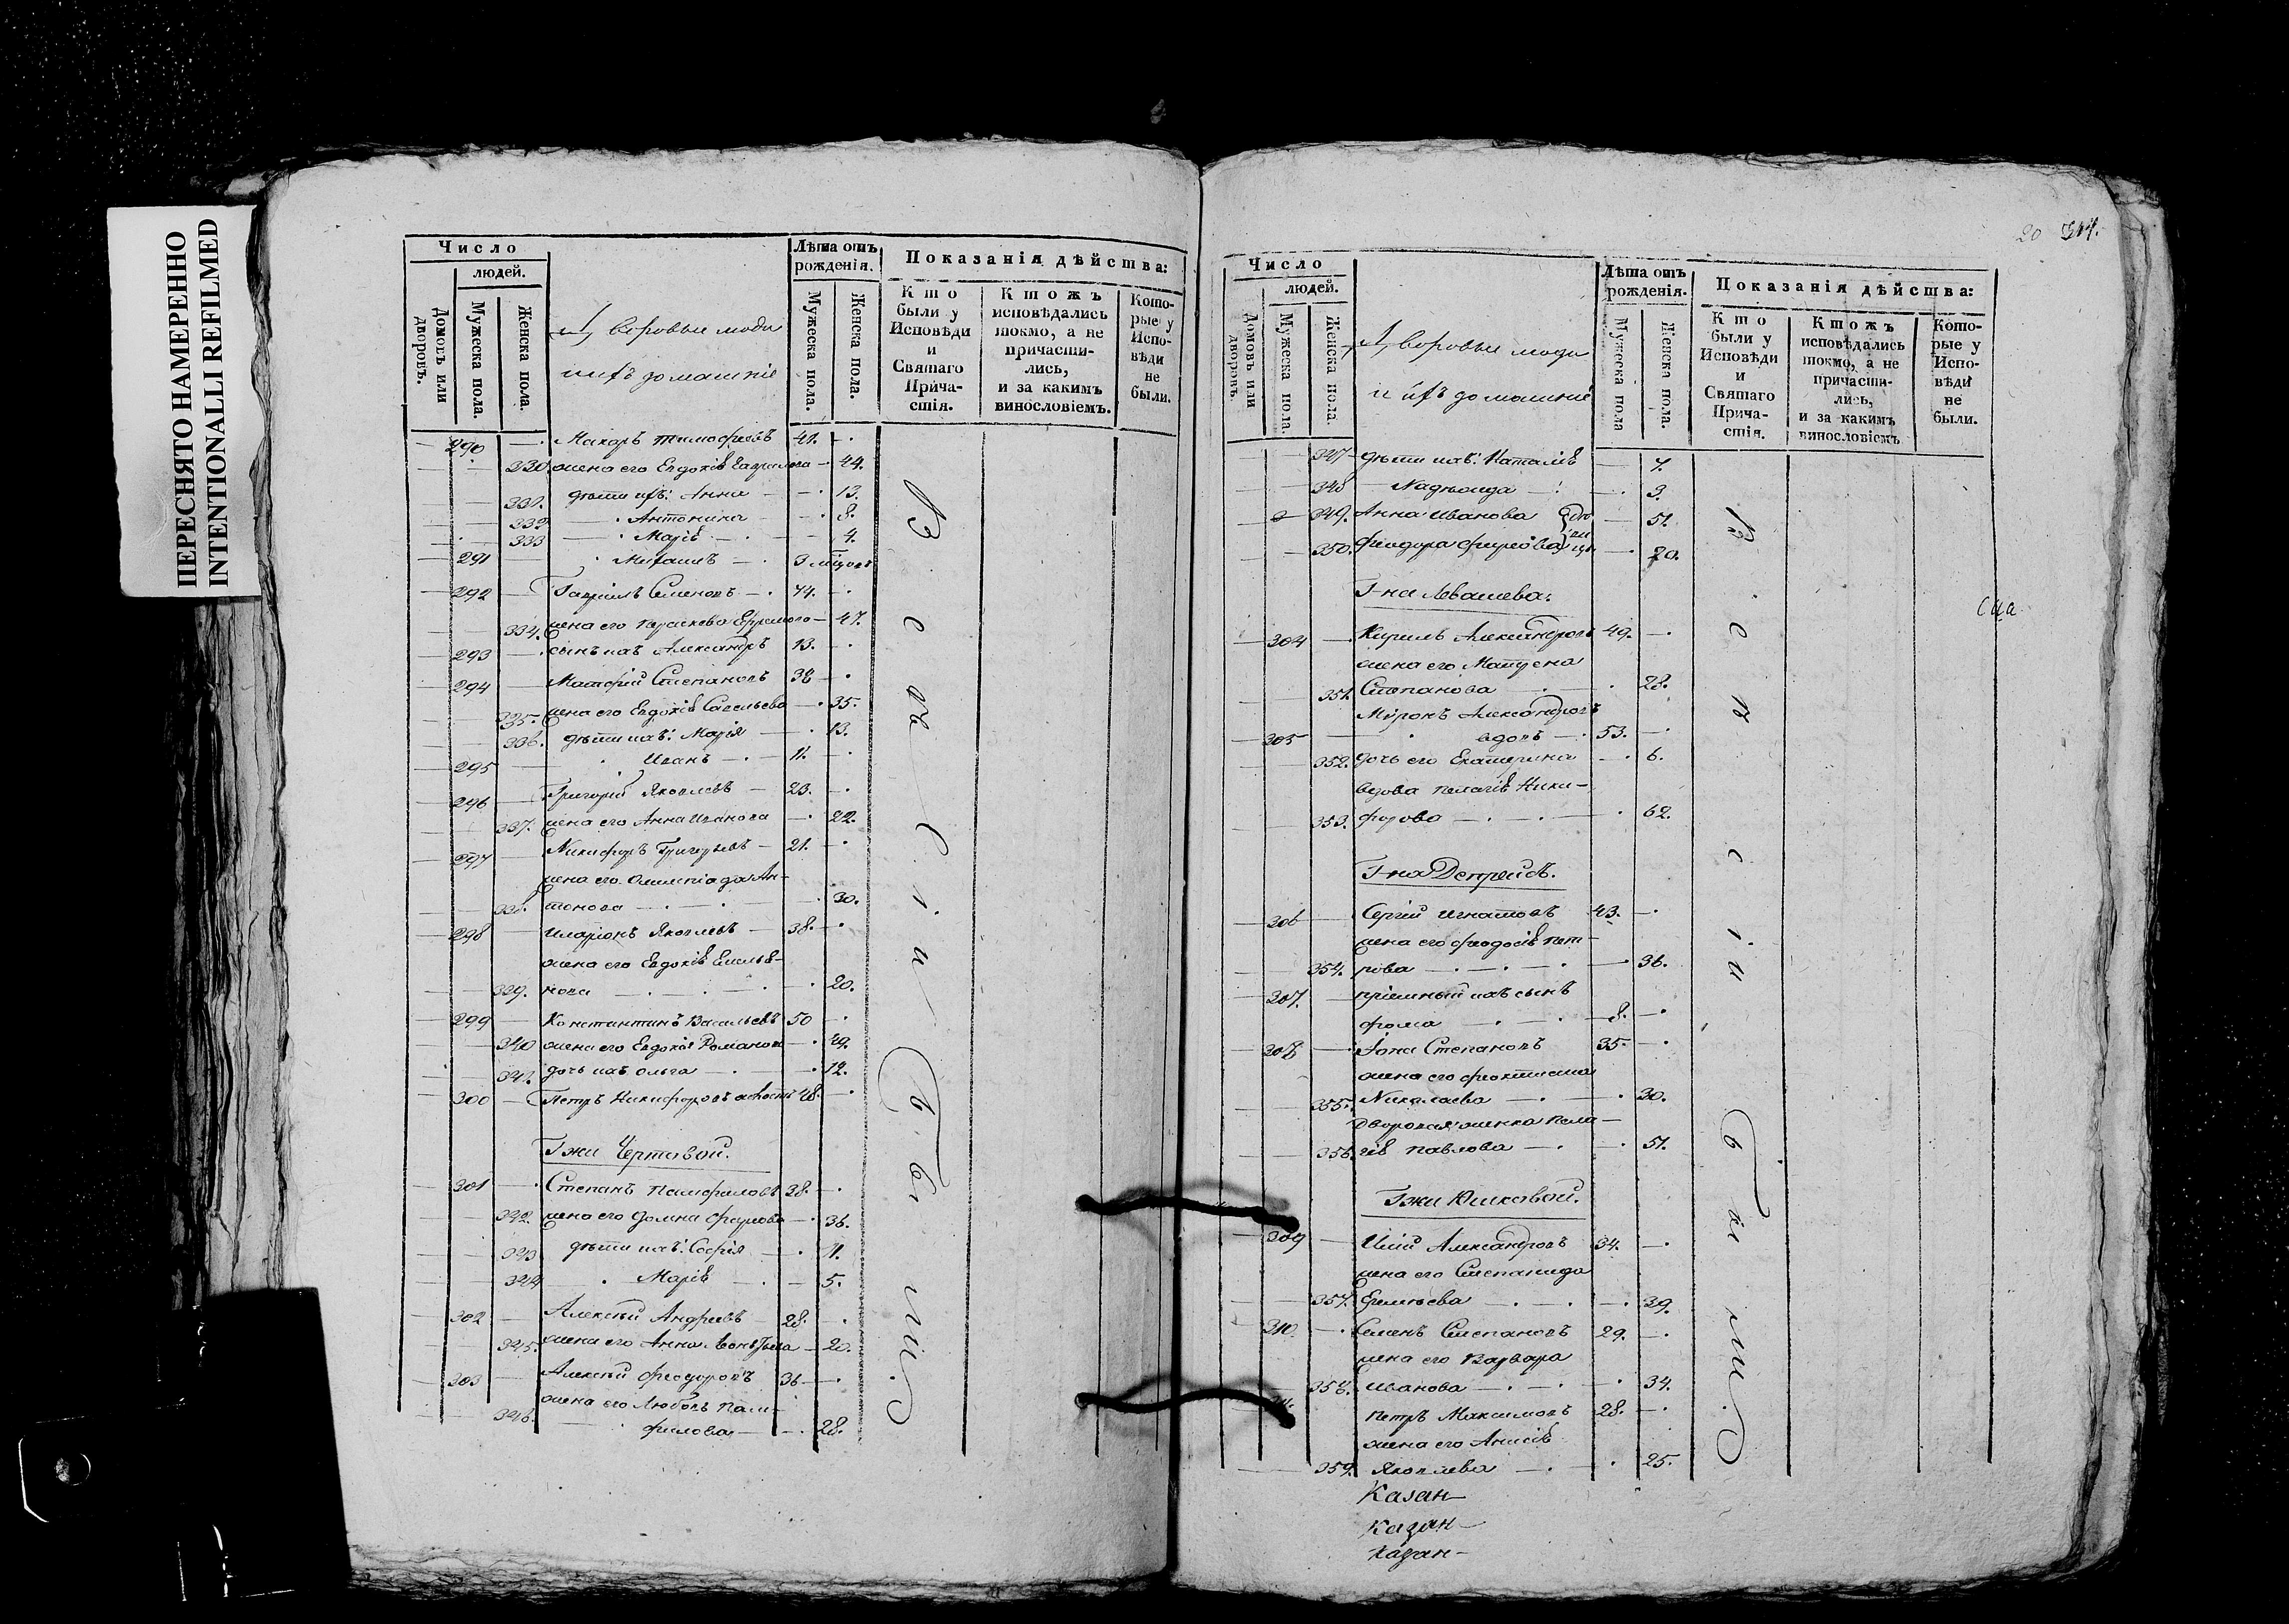 ПЕРЕСНЯТО НАМЕРЕННО
INTENTIONALLI REFILMED
Число
людей.
Домовъ или дворовъ.
Мужеска пола.
Женска пола.
Дворовые люди
и ихъ домашніе
Лѣта отъ рожденія.
Мужеска пола.
Женска пола.
Показанія дѣйства:
Кто были у Исповѣди и Святаго Причастія.
Ктожъ исповѣдались токмо, а не причастились, и за какимъ винословіемъ.
Которые у Исповѣди не были.
290 Макаръ Тимофеевъ 41.
330. жена его Евдокія 44.
331. дѣти ихъ: Анна 13.
332 Антонина 8.
333 Марія 4.
291 Михаилъ
292 Гавріилъ Семеновъ 44.
334. жена его Параскева Ефремова 47.
293 сынъ ихъ Александръ 13.
294 Матфей Степановъ 38
335. жена его Евдокія Савельева 35.
336. дѣти ихъ: Марія 13.
295 Иванъ 11.
296 Григорій Яковлевъ 23.
337. жена его Анна Иванова 22.
297 Никифоръ Григорьевъ 21.
жена его Олимпіада Ан-
338. тонова 30.
298 Иларіонъ Яковлевъ 38.
жена его Евдокія Емелья-
339. нова 20.
299 Константинъ Васильевъ 50
340 жена его Евдокія Романова 49.
341. дочь ихъ Ольга 12.
300 Петръ Никифоровъ холостъ 48.
Гжи Чертовой.
301 Степанъ Памфиловъ 38.
342. жена его Домна 36.
343 дѣти ихъ: Софія 11.
344 Марія 5.
302 Алексѣй Андреевъ 28.
345. жена его Анна Леонтьева 20.
303 Алексѣй Феодоровъ 36
жена его Любовь Пам-
346. филова 28.
20
Число
людей.
Домовъ или дворовъ.
Мужеска пола.
Женска пола.
Дворовые люди
и ихъ домашніе
Лѣта отъ рожденія.
Мужеска пола
Женска пола.
Показанія дѣйства:
Кто были у Исповѣди и Святаго Причастія.
Ктожъ исповѣдались токмо, а не причастились, и за какимъ винословіемъ
Которые у Исповѣди не были.
347 дѣти ихъ: Наталія 7.
348 Надежда 3.
349. Анна Иванова 51.
350. Феодора 70.
Гна Левашева.
304 Кирилъ Александровъ 49.
жена его Матрена
351. Степанова 28.
Миронъ Александровъ
305 вдовъ 53.
352. дочь его Екатерина 6.
вдова Пелагія Ники-
353. форова 62.
Гна
306 Сергій Игнатовъ 43.
жена его Феодосія Пет-
354. рова 36.
307. пріемный ихъ сынъ
Фома 8.
308 Іона Степановъ 35.
жена его Феоктиста
355. Николаева 30.
Дворовая женка Пела-
356. гія Павлова 51.
Гжи Юшковой.
309 Александровъ 34.
жена его Степанида
357. 39.
310. Семенъ Степановъ 29.
жена его Варвара
358. Иванова 34.
Петръ Максимовъ 28.
жена его Анисія
359. Яковлева 25.
Казан-
Казан-
Казан-